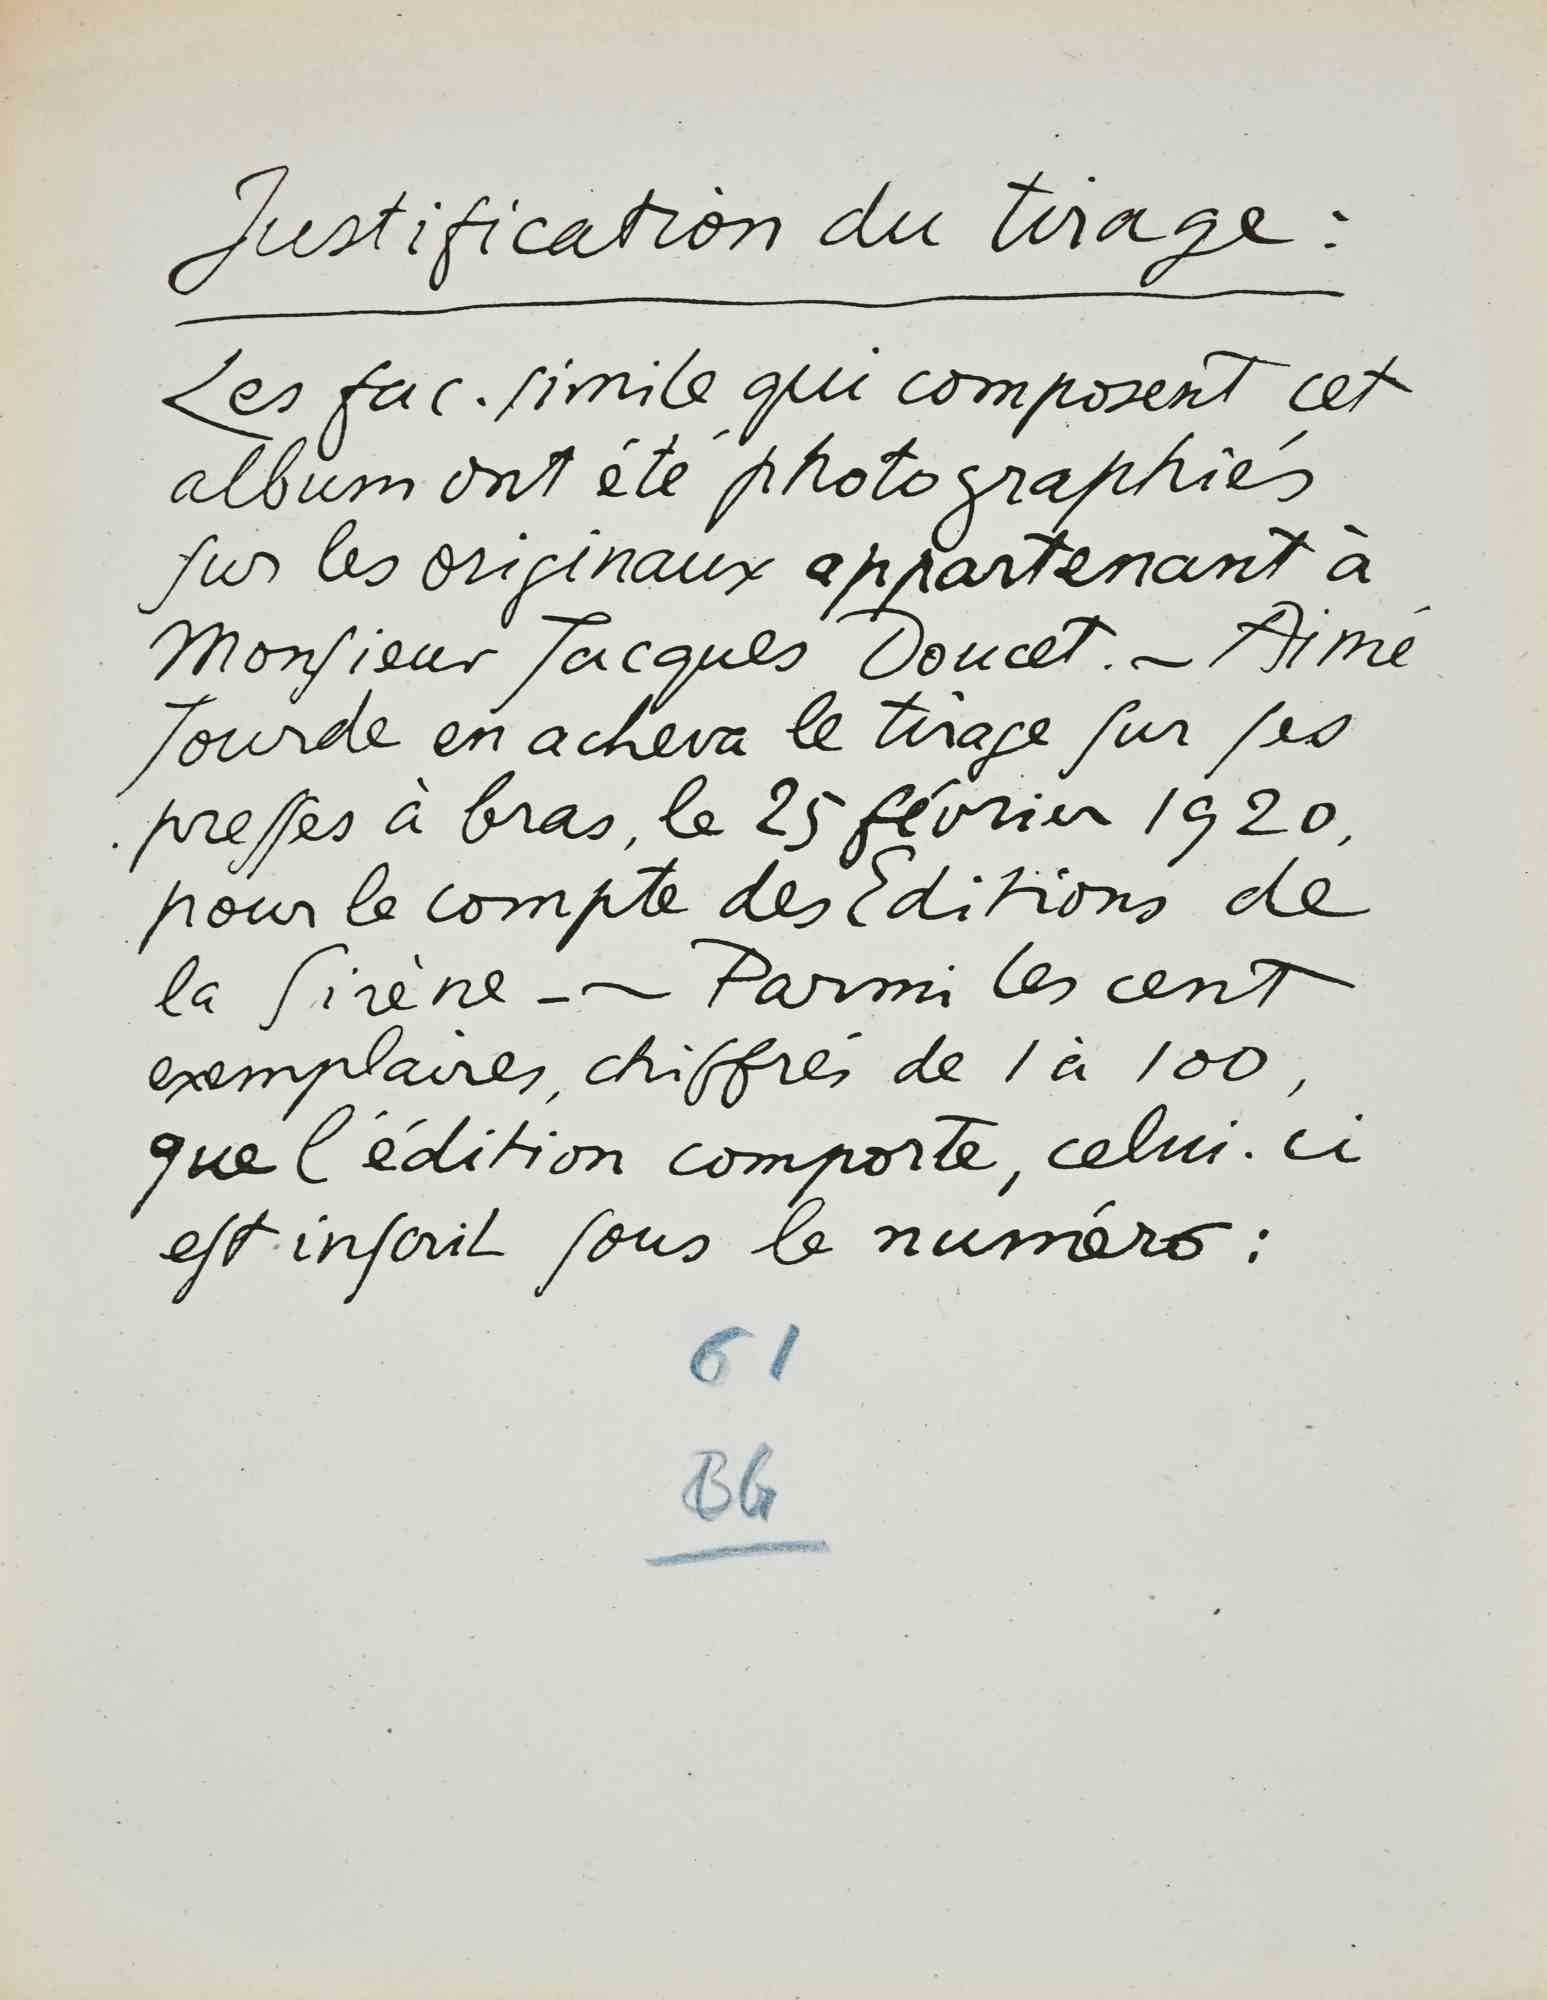 Justification du tirage :
Les fac-simile qui composent cet
album ont été photographiés
sur les originaux appartenant à
Monsieur Jacques Doucet. - Aimé
Jourde en acheva le tirage sur ses
presses à bras, le 25 février 1920,
pour le compte des Editions de
la Sirène -- Parmi les cent
exemplaires, chiffrés de 1 à 100,
que l'édition comporte, celui-ci
est inscrit sous le numéro :
61
BG